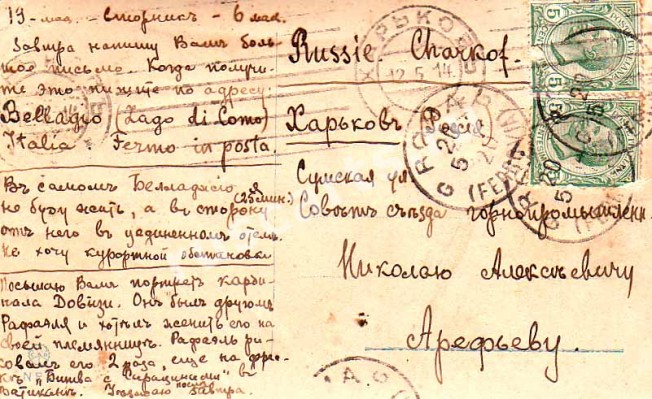 19 мая - вторник - 6 мая.
Завтра напишу Вамъ боль-
шое письмо. Когда получи-
те это пишите по адресу:
Bellagio (Lago di Como)
Italia - Fermo in posta.
Въ самомъ Белладжіо
(25 мин.)
не буду жить, а въ сторонѣ
отъ него въ уединенномъ отелѣ.
Не хочу курортной обстановки
Посылаю Вамъ портретъ карди-
нала Довизи. Онъ былъ другомъ
Рафаэля и хотѣлъ женить его на
своей племянницѣ. Рафаэль ри-
совалъ его 2 раза, еще на фре-
скѣ "Битва с Сарацинами" въ
Ватиканѣ. завтра.
Russie. Charkof.
Харьковъ
Сумская ул.
Совѣтъ съѣзда горнопромышленн.
Николаю Алексѣевичу
Арефьеву.
ХАРЬКОВЪ
12.5.14
5
5